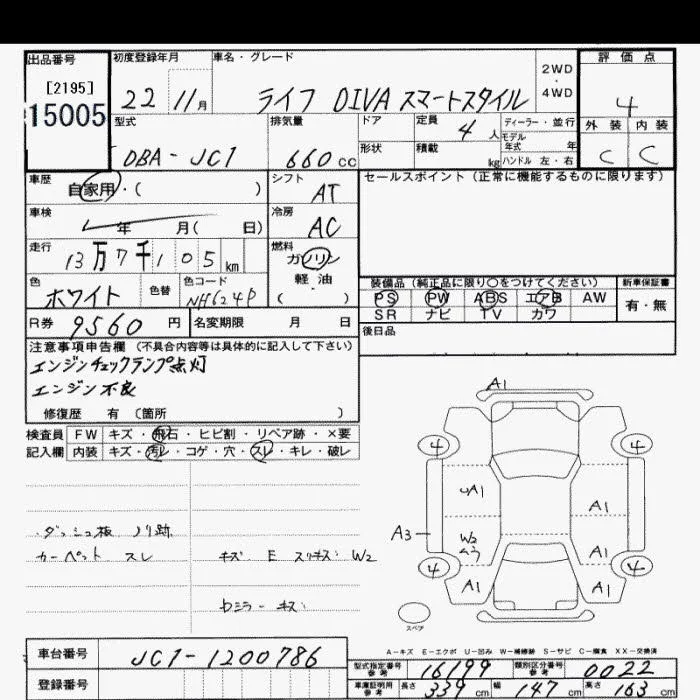 出品番号 初度登録年月 車名・グレード 2WD・4WD 評価点
[2195]
15005
22 11月 ライフ DIVA スマートスタイル 4
型式 排気量 ドア 定員 4人 ディーラー・並行 外装 内装
モデル年式 年
DBA-JC1 660cc 形状 積載 kg ハンドル 左・右 C C
車歴 自家用・( ) シフト AT セールスポイント(正常に機能するものに限ります)
車検 年 月( 日) 冷房 AC
走行 13万7千105km 燃料 ガソリン
軽油
( )
色 ホワイト 色替 色コード NH624P
装備品(純正品に限り○をつけてください) 新車保証書
PS PW ABS エアB AW 有・無
SR ナビ TV カワ
R券 9560円 名変期限 月 日 後日品
注意事項申告欄(不具合内容等は具体的に記入して下さい)
エンジンチェックランプ点灯
エンジン不良
修復歴 有(箇所 )
検査員 FW キズ・飛石・ヒビ割・リペア跡・×要
記入欄 内装 キズ・汚レ・コゲ・穴・スレ・キレ・破レ
ダッシュ板 ノリ跡
カーペット スレ キズ E スリキズ W2
セミラー キズ
A1
4 4
A1 A1
A3 W2 A1
4 4
A1 A1
スペア
A-キズ E-エクボ U-凹み W-補修跡 S-サビ C-腐食 XX-交換済
車台番号 JC1-1200786
登録番号
型式指定番号 参考 16199 類別区分番号 参考 0022
車庫証明用 参考 長さ 339cm 幅 147cm 高さ 163cm